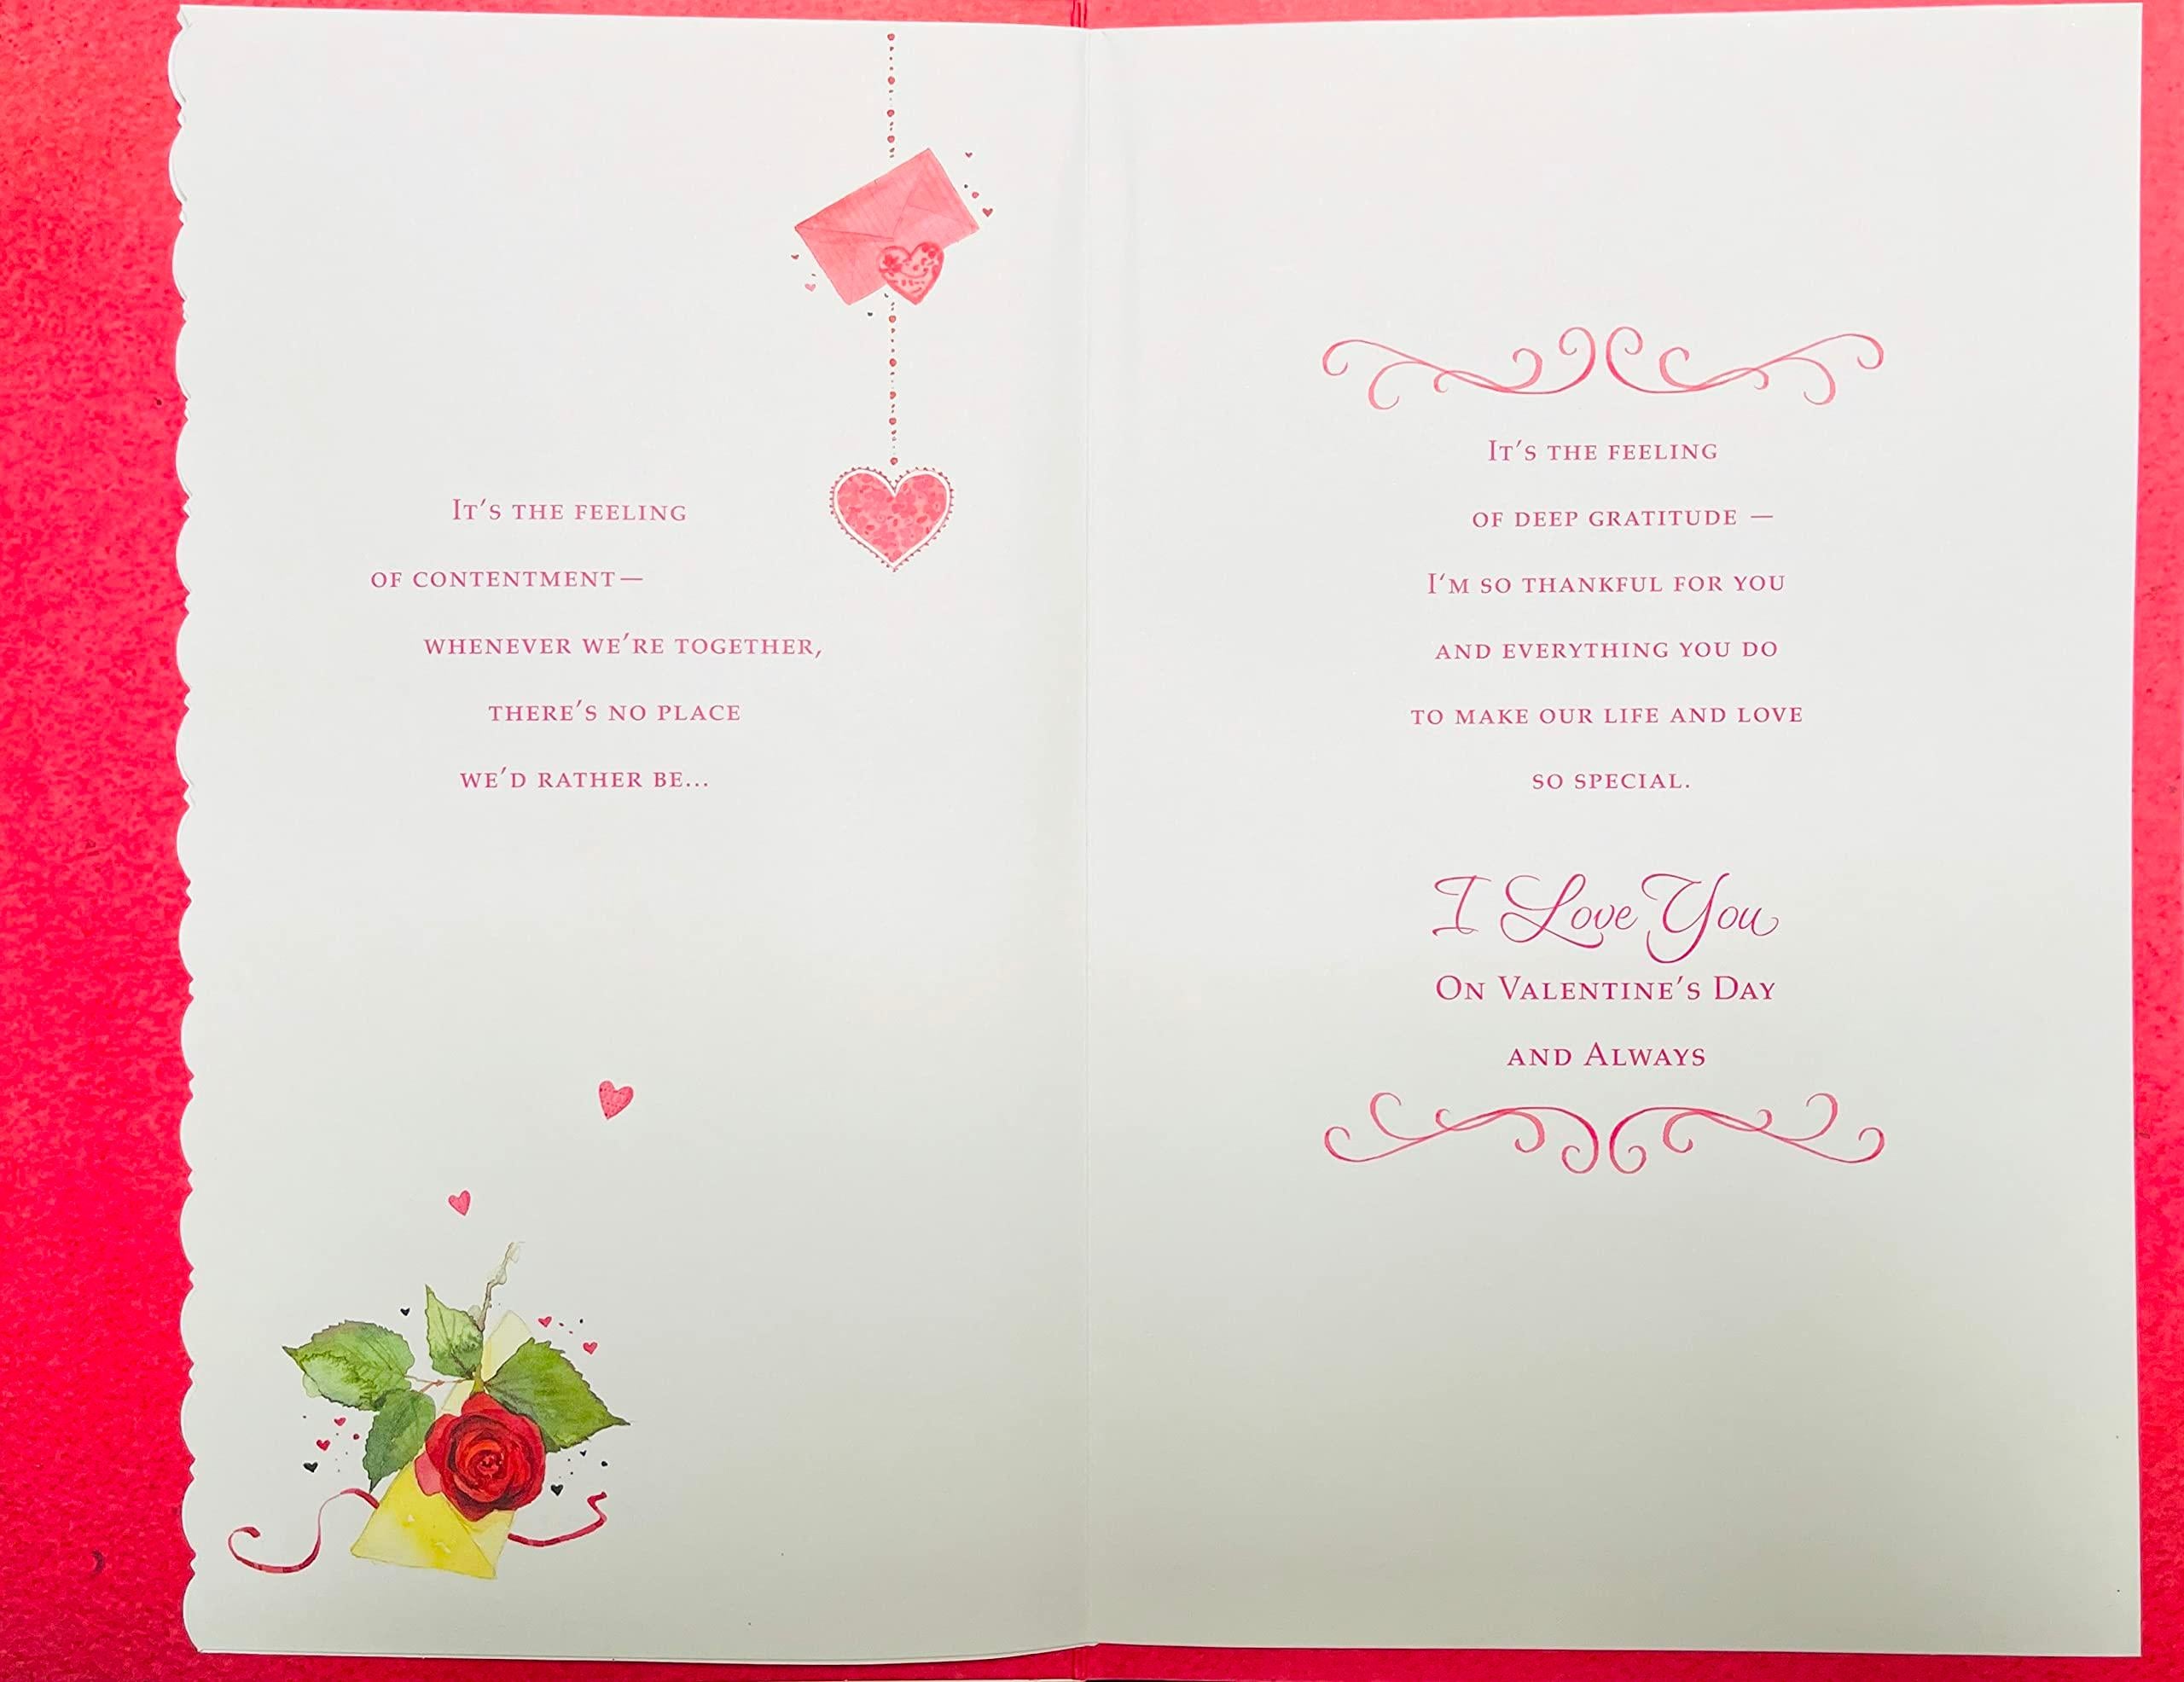 It's the feeling
of contentment—
whenever we're together,
there's no place
we'd rather be...
It's the feeling
of deep gratitude —
I'm so thankful for you
and everything you do
to make our life and love
so special.
I Love You
On Valentine's Day
and Always